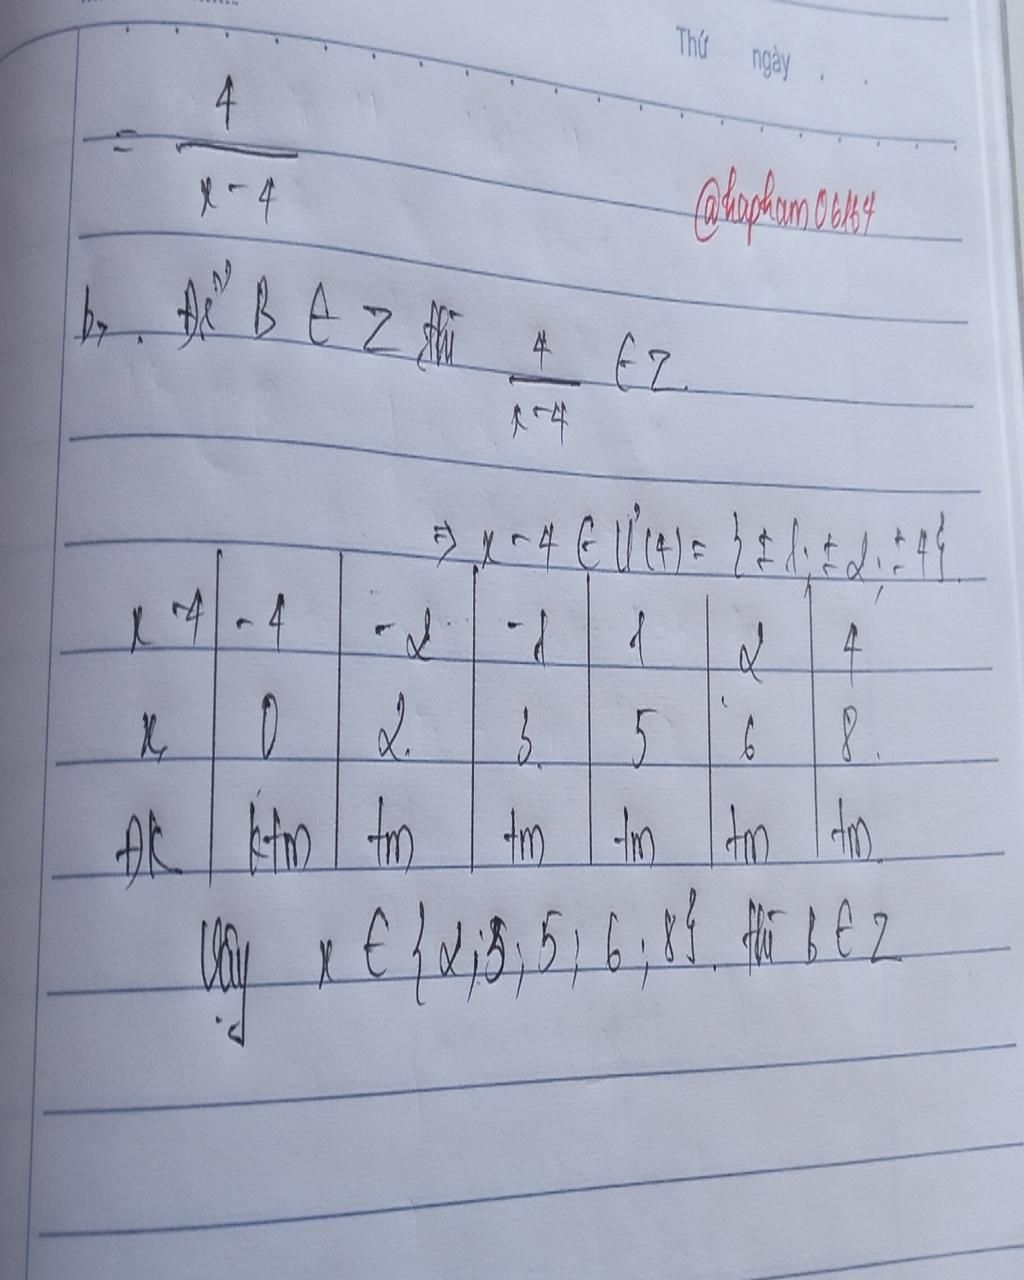 Thứ ngày . .
= 4/(x - 4)
@hapham06164
b, . Để B ∈ Z thì 4/(x-4) ∈ Z.
=> x - 4 ∈ Ư(4) = {±1; ±2; ±4}.
x-4 | -4 | -2 | -1 | 1 | 2 | 4
x | 0 | 2. | 3. | 5 | 6 | 8.
ĐK | ktm | tm | tm | tm | tm | tm
Vậy x ∈ {2;3;5;6;8}. thì B ∈ Z